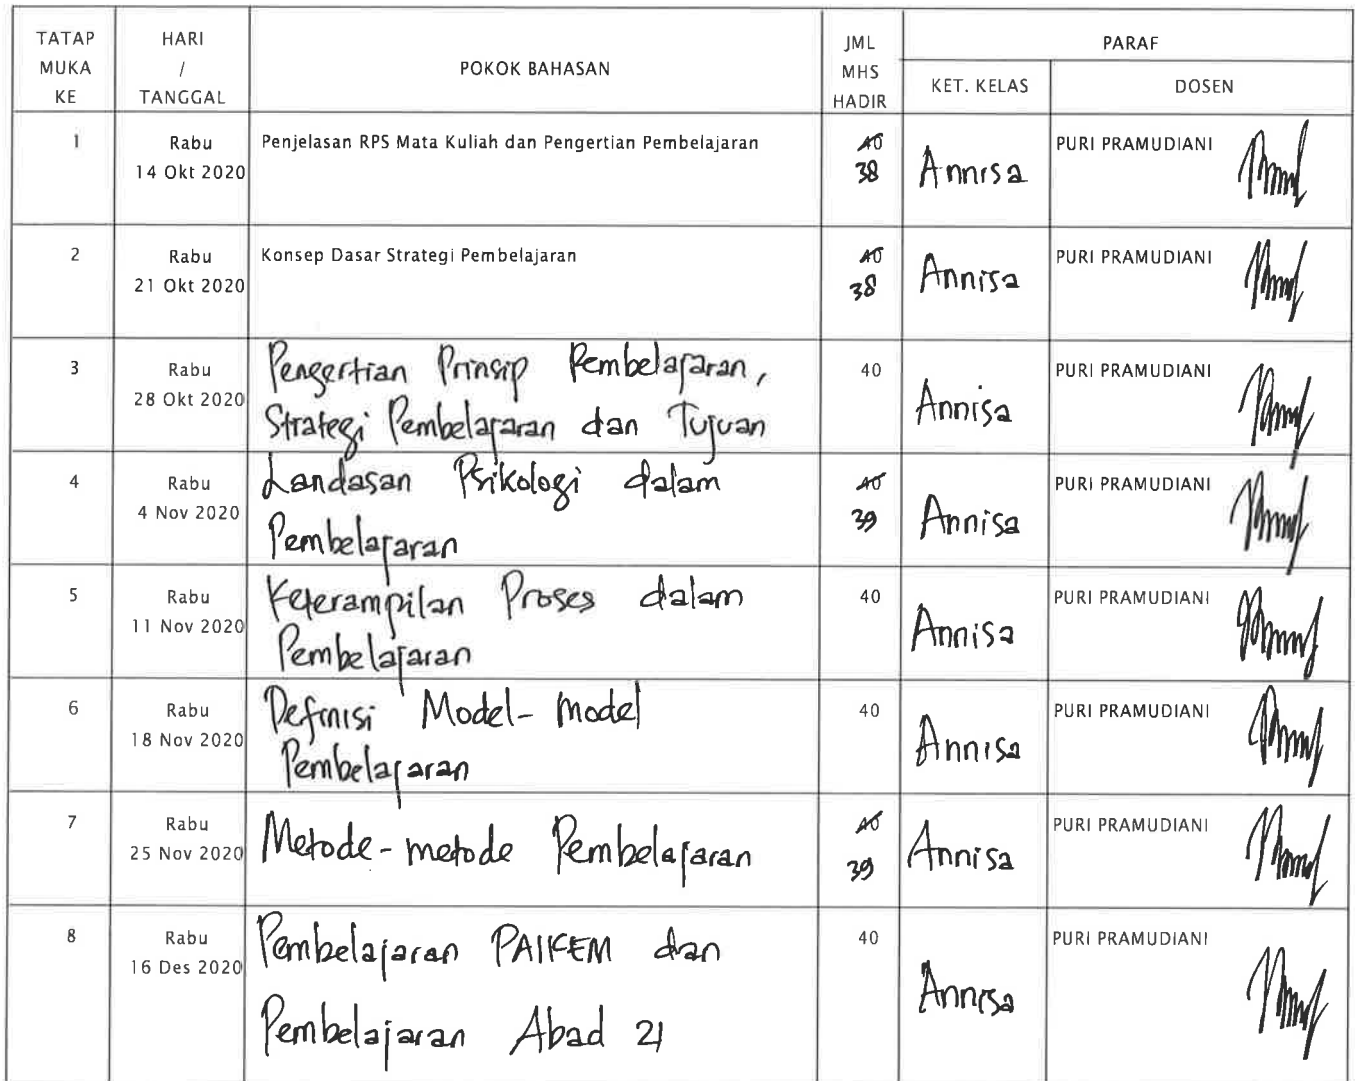 TATAP MUKA KE
HARI / TANGGAL
POKOK BAHASAN
JML MHS HADIR
PARAF
KET. KELAS
DOSEN
1
Rabu
14 Okt 2020
Penjelasan RPS Mata Kuliah dan Pengertian Pembelajaran
40
38
Annisa
PURI PRAMUDIANI
2
Rabu
21 Okt 2020
Konsep Dasar Strategi Pembelajaran
40
38
Annisa
PURI PRAMUDIANI
3
Rabu
28 Okt 2020
Pengertian Prinsip Pembelajaran,
Strategi Pembelajaran dan Tujuan
40
Annisa
PURI PRAMUDIANI
4
Rabu
4 Nov 2020
Landasan Psikologi dalam
Pembelajaran
40
39
Annisa
PURI PRAMUDIANI
5
Rabu
11 Nov 2020
Keterampilan Proses dalam
Pembelajaran
40
Annisa
PURI PRAMUDIANI
6
Rabu
18 Nov 2020
Definisi Model-model
Pembelajaran
40
Annisa
PURI PRAMUDIANI
7
Rabu
25 Nov 2020
Metode-metode Pembelajaran
40
39
Annisa
PURI PRAMUDIANI
8
Rabu
16 Des 2020
Pembelajaran PAIKEM dan
Pembelajaran Abad 21
40
Annisa
PURI PRAMUDIANI